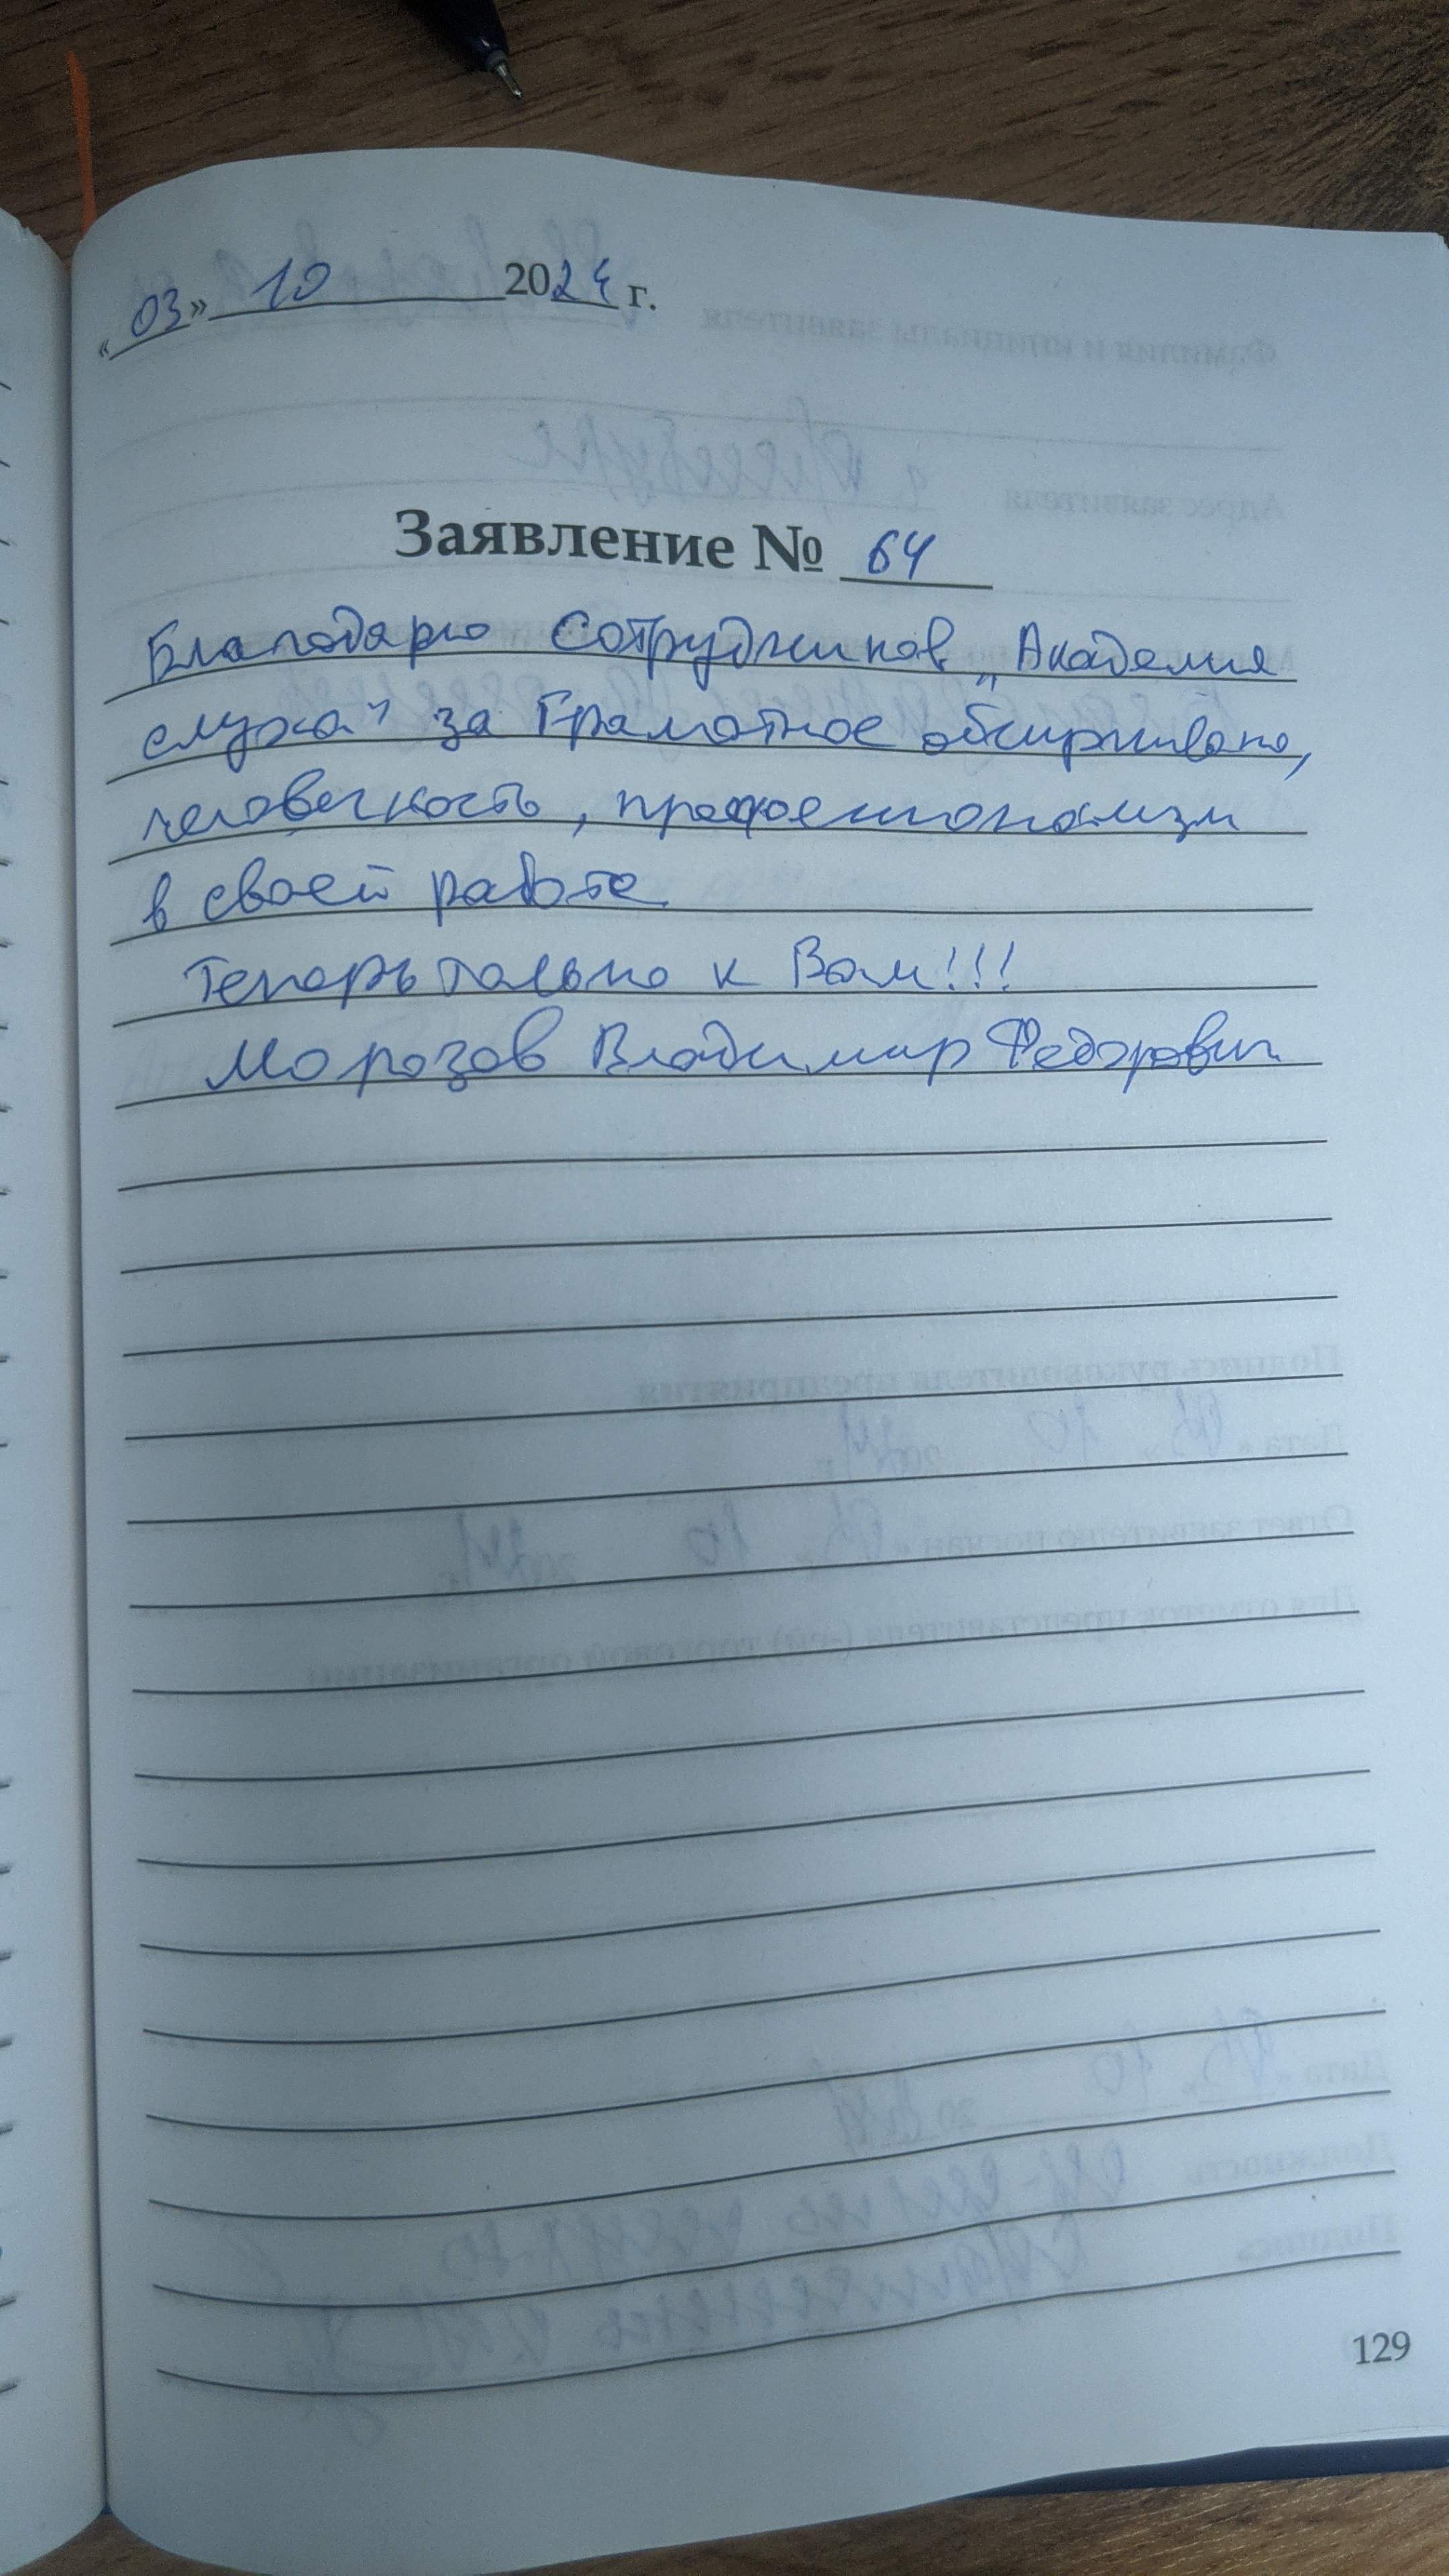 «03» 10 2024 г.
Заявление № 64
Благодарю Сотрудников „Академия
слуха" за Грамотное
человечность, профессионализм
в своей работе
Теперь только к Вам!!!
Морозов Владимир Федорович
129